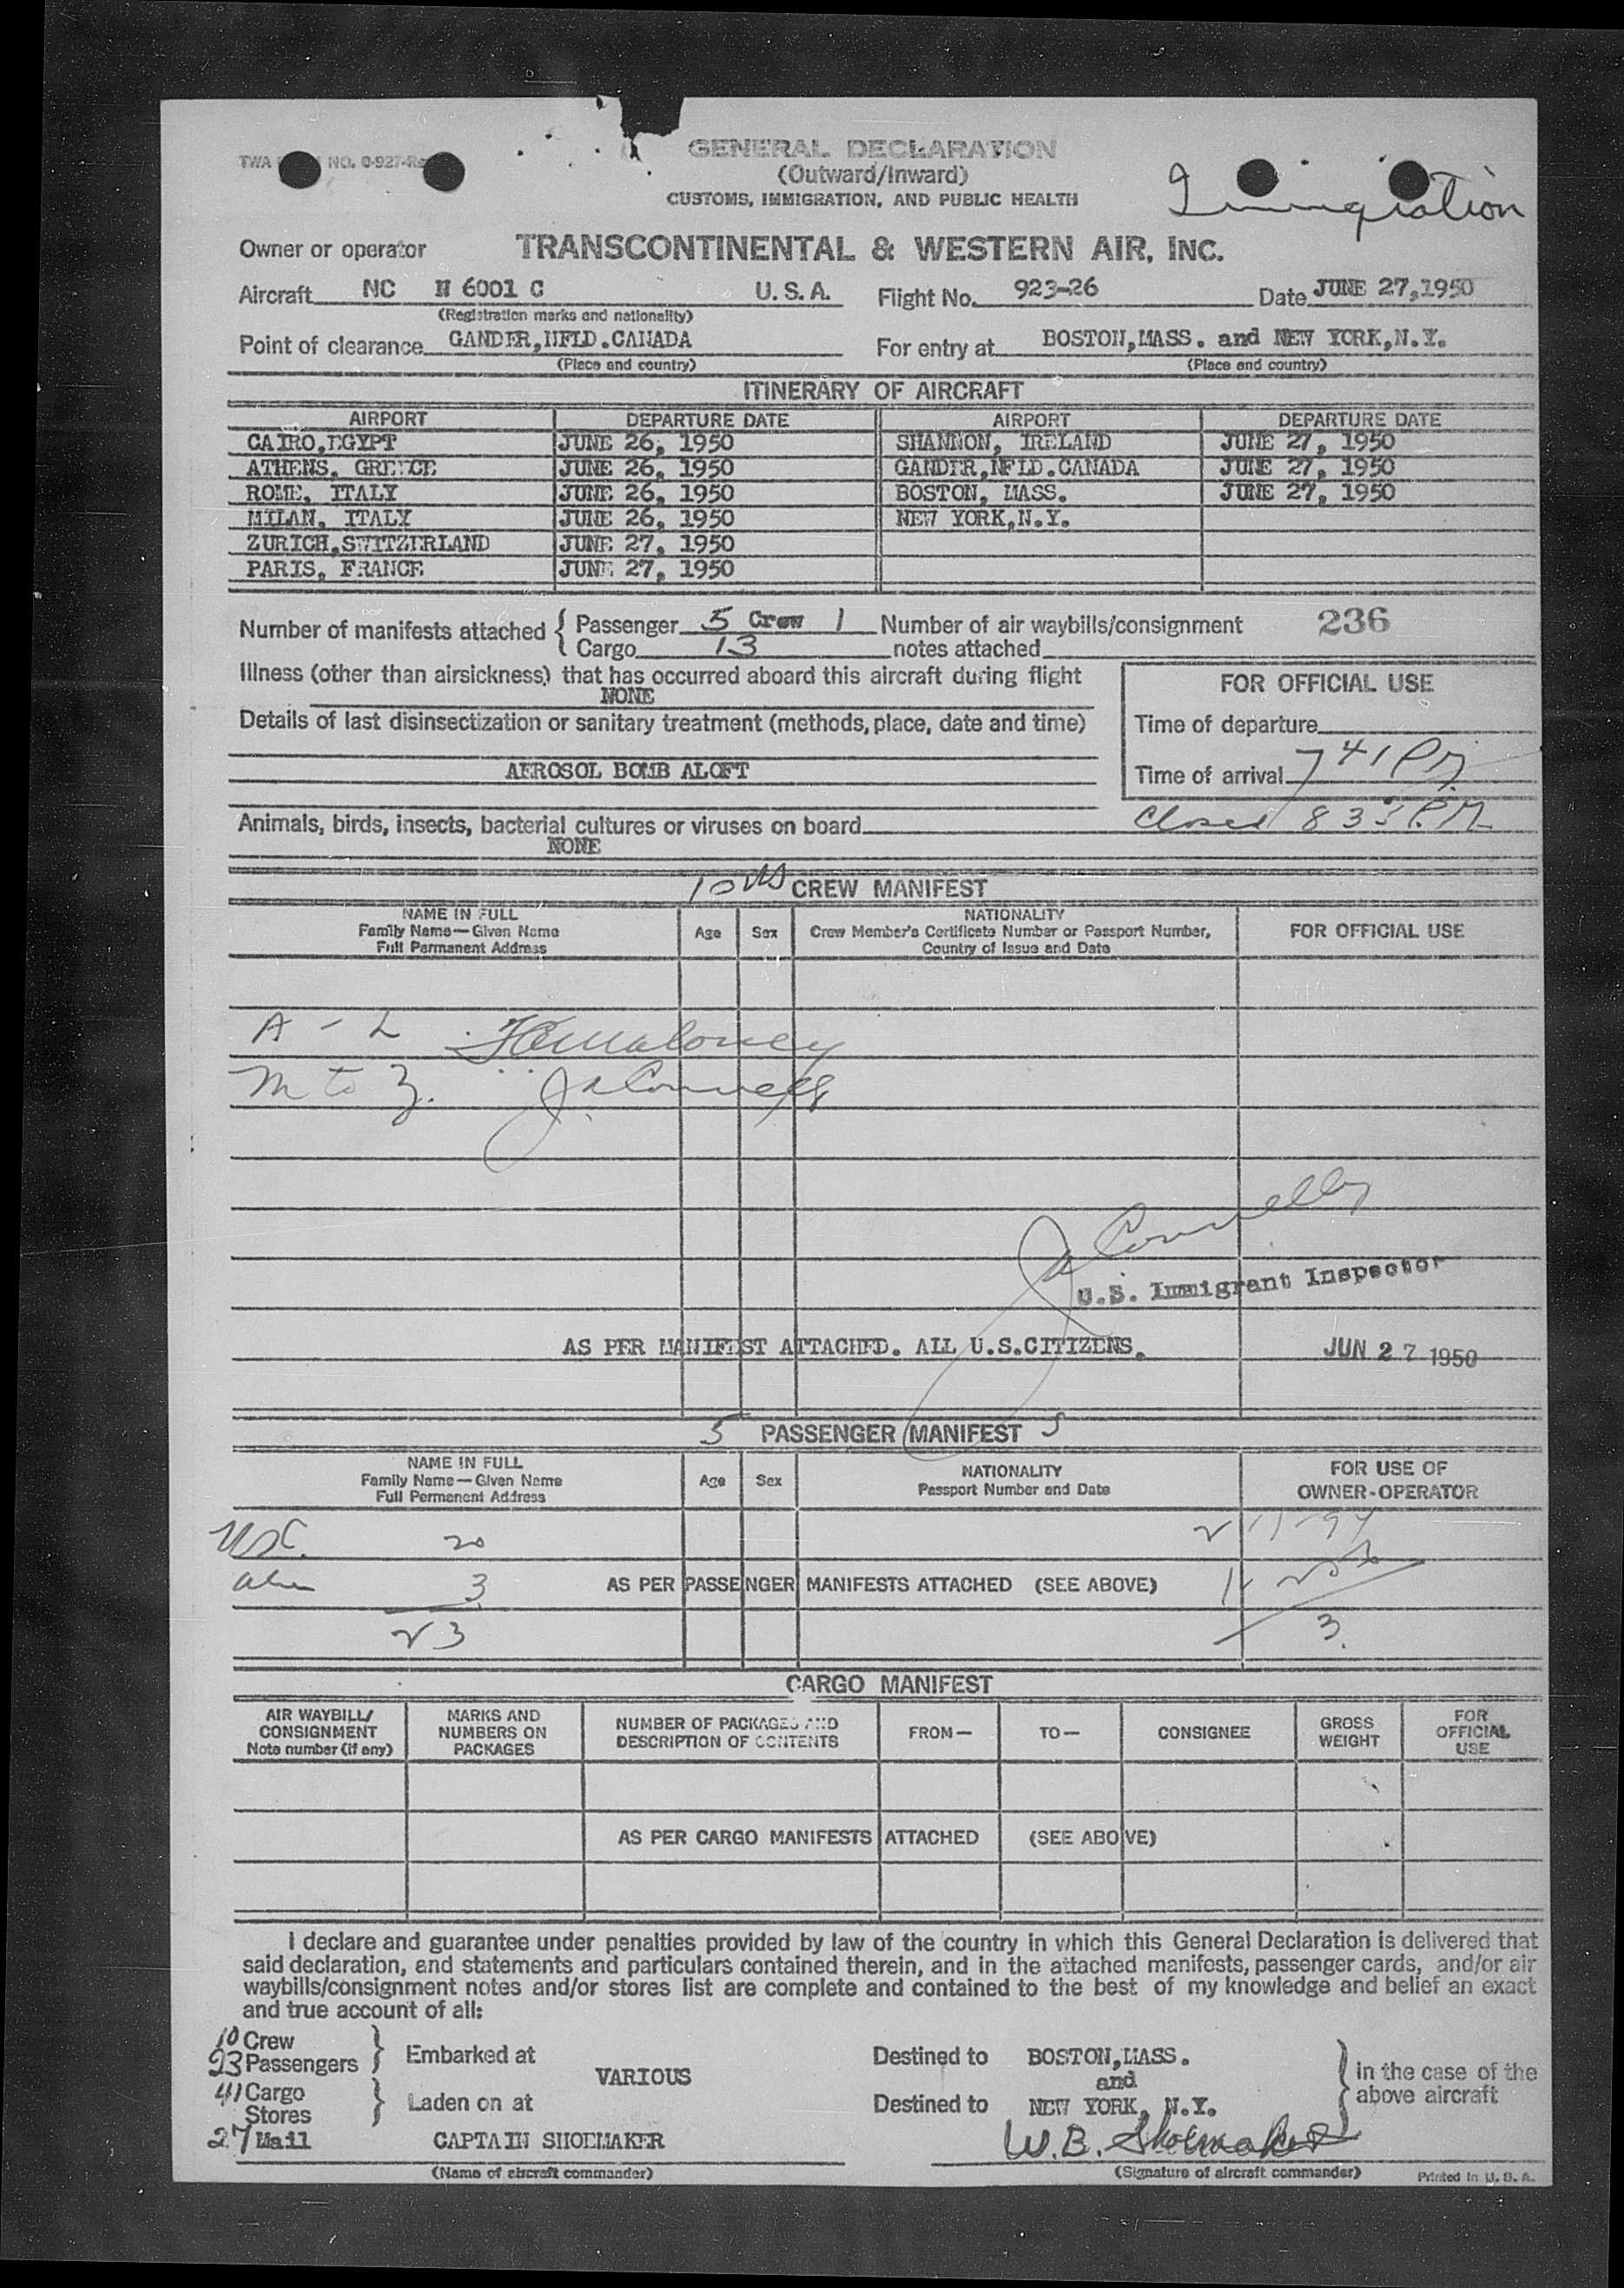 GENERAL DECLARATION
(Outward/Inward)
CUSTOMS, IMMIGRATION, AND PUBLIC HEALTH
TWA NO. 0-927-R
Immigration
Owner or operator TRANSCONTINENTAL & WESTERN AIR, INC.
Aircraft NC N 6001 C U.S.A. Flight No. 923-26 Date JUNE 27, 1950
(Registration marks and nationality)
Point of clearance GANDER, NFLD. CANADA For entry at BOSTON, MASS. and NEW YORK, N.Y.
(Place and country) (Place and country)
ITINERARY OF AIRCRAFT
AIRPORT DEPARTURE DATE AIRPORT DEPARTURE DATE
CAIRO, EGYPT JUNE 26, 1950 SHANNON, IRELAND JUNE 27, 1950
ATHENS, GREECE JUNE 26, 1950 GANDER, NFLD. CANADA JUNE 27, 1950
ROME, ITALY JUNE 26, 1950 BOSTON, MASS. JUNE 27, 1950
MILAN, ITALY JUNE 26, 1950 NEW YORK, N.Y.
ZURICH, SWITZERLAND JUNE 27, 1950
PARIS, FRANCE JUNE 27, 1950
Number of manifests attached { Passenger 5 Crew 1 Number of air waybills/consignment 236
Cargo 13 notes attached
Illness (other than airsickness) that has occurred aboard this aircraft during flight
NONE
FOR OFFICIAL USE
Details of last disinsectization or sanitary treatment (methods, place, date and time)
Time of departure
AEROSOL BOMB ALOFT
Time of arrival 7 41 PM
Closed 8 33 P.M.
Animals, birds, insects, bacterial cultures or viruses on board
NONE
CREW MANIFEST
NAME IN FULL
Family Name—Given Name
Full Permanent Address
Age Sex
NATIONALITY
Crew Member's Certificate Number or Passport Number,
Country of Issue and Date
FOR OFFICIAL USE
A - L Maloney
M to Z. J A Connelly
J A Connelly
U.S. Immigrant Inspector
AS PER MANIFEST ATTACHED. ALL U.S.CITIZENS. JUN 27 1950
5 PASSENGER MANIFEST S
NAME IN FULL
Family Name—Given Name
Full Permanent Address
Age Sex
NATIONALITY
Passport Number and Date
FOR USE OF
OWNER-OPERATOR
USC. 20
alien 3 AS PER PASSENGER MANIFESTS ATTACHED (SEE ABOVE)
23 3
CARGO MANIFEST
AIR WAYBILL/
CONSIGNMENT
Note number (if any)
MARKS AND
NUMBERS ON
PACKAGES
NUMBER OF PACKAGES AND
DESCRIPTION OF CONTENTS
FROM— TO— CONSIGNEE
GROSS
WEIGHT
FOR
OFFICIAL
USE
AS PER CARGO MANIFESTS ATTACHED (SEE ABOVE)
I declare and guarantee under penalties provided by law of the country in which this General Declaration is delivered that
said declaration, and statements and particulars contained therein, and in the attached manifests, passenger cards, and/or air
waybills/consignment notes and/or stores list are complete and contained to the best of my knowledge and belief an exact
and true account of all:
10 Crew
23 Passengers } Embarked at VARIOUS Destined to BOSTON, MASS.
and
41 Cargo
Stores } Laden on at Destined to NEW YORK, N.Y.
} in the case of the
above aircraft
27 Mail CAPTAIN SHOEMAKER W.B. Shoemaker
(Name of aircraft commander) (Signature of aircraft commander) Printed in U.S.A.